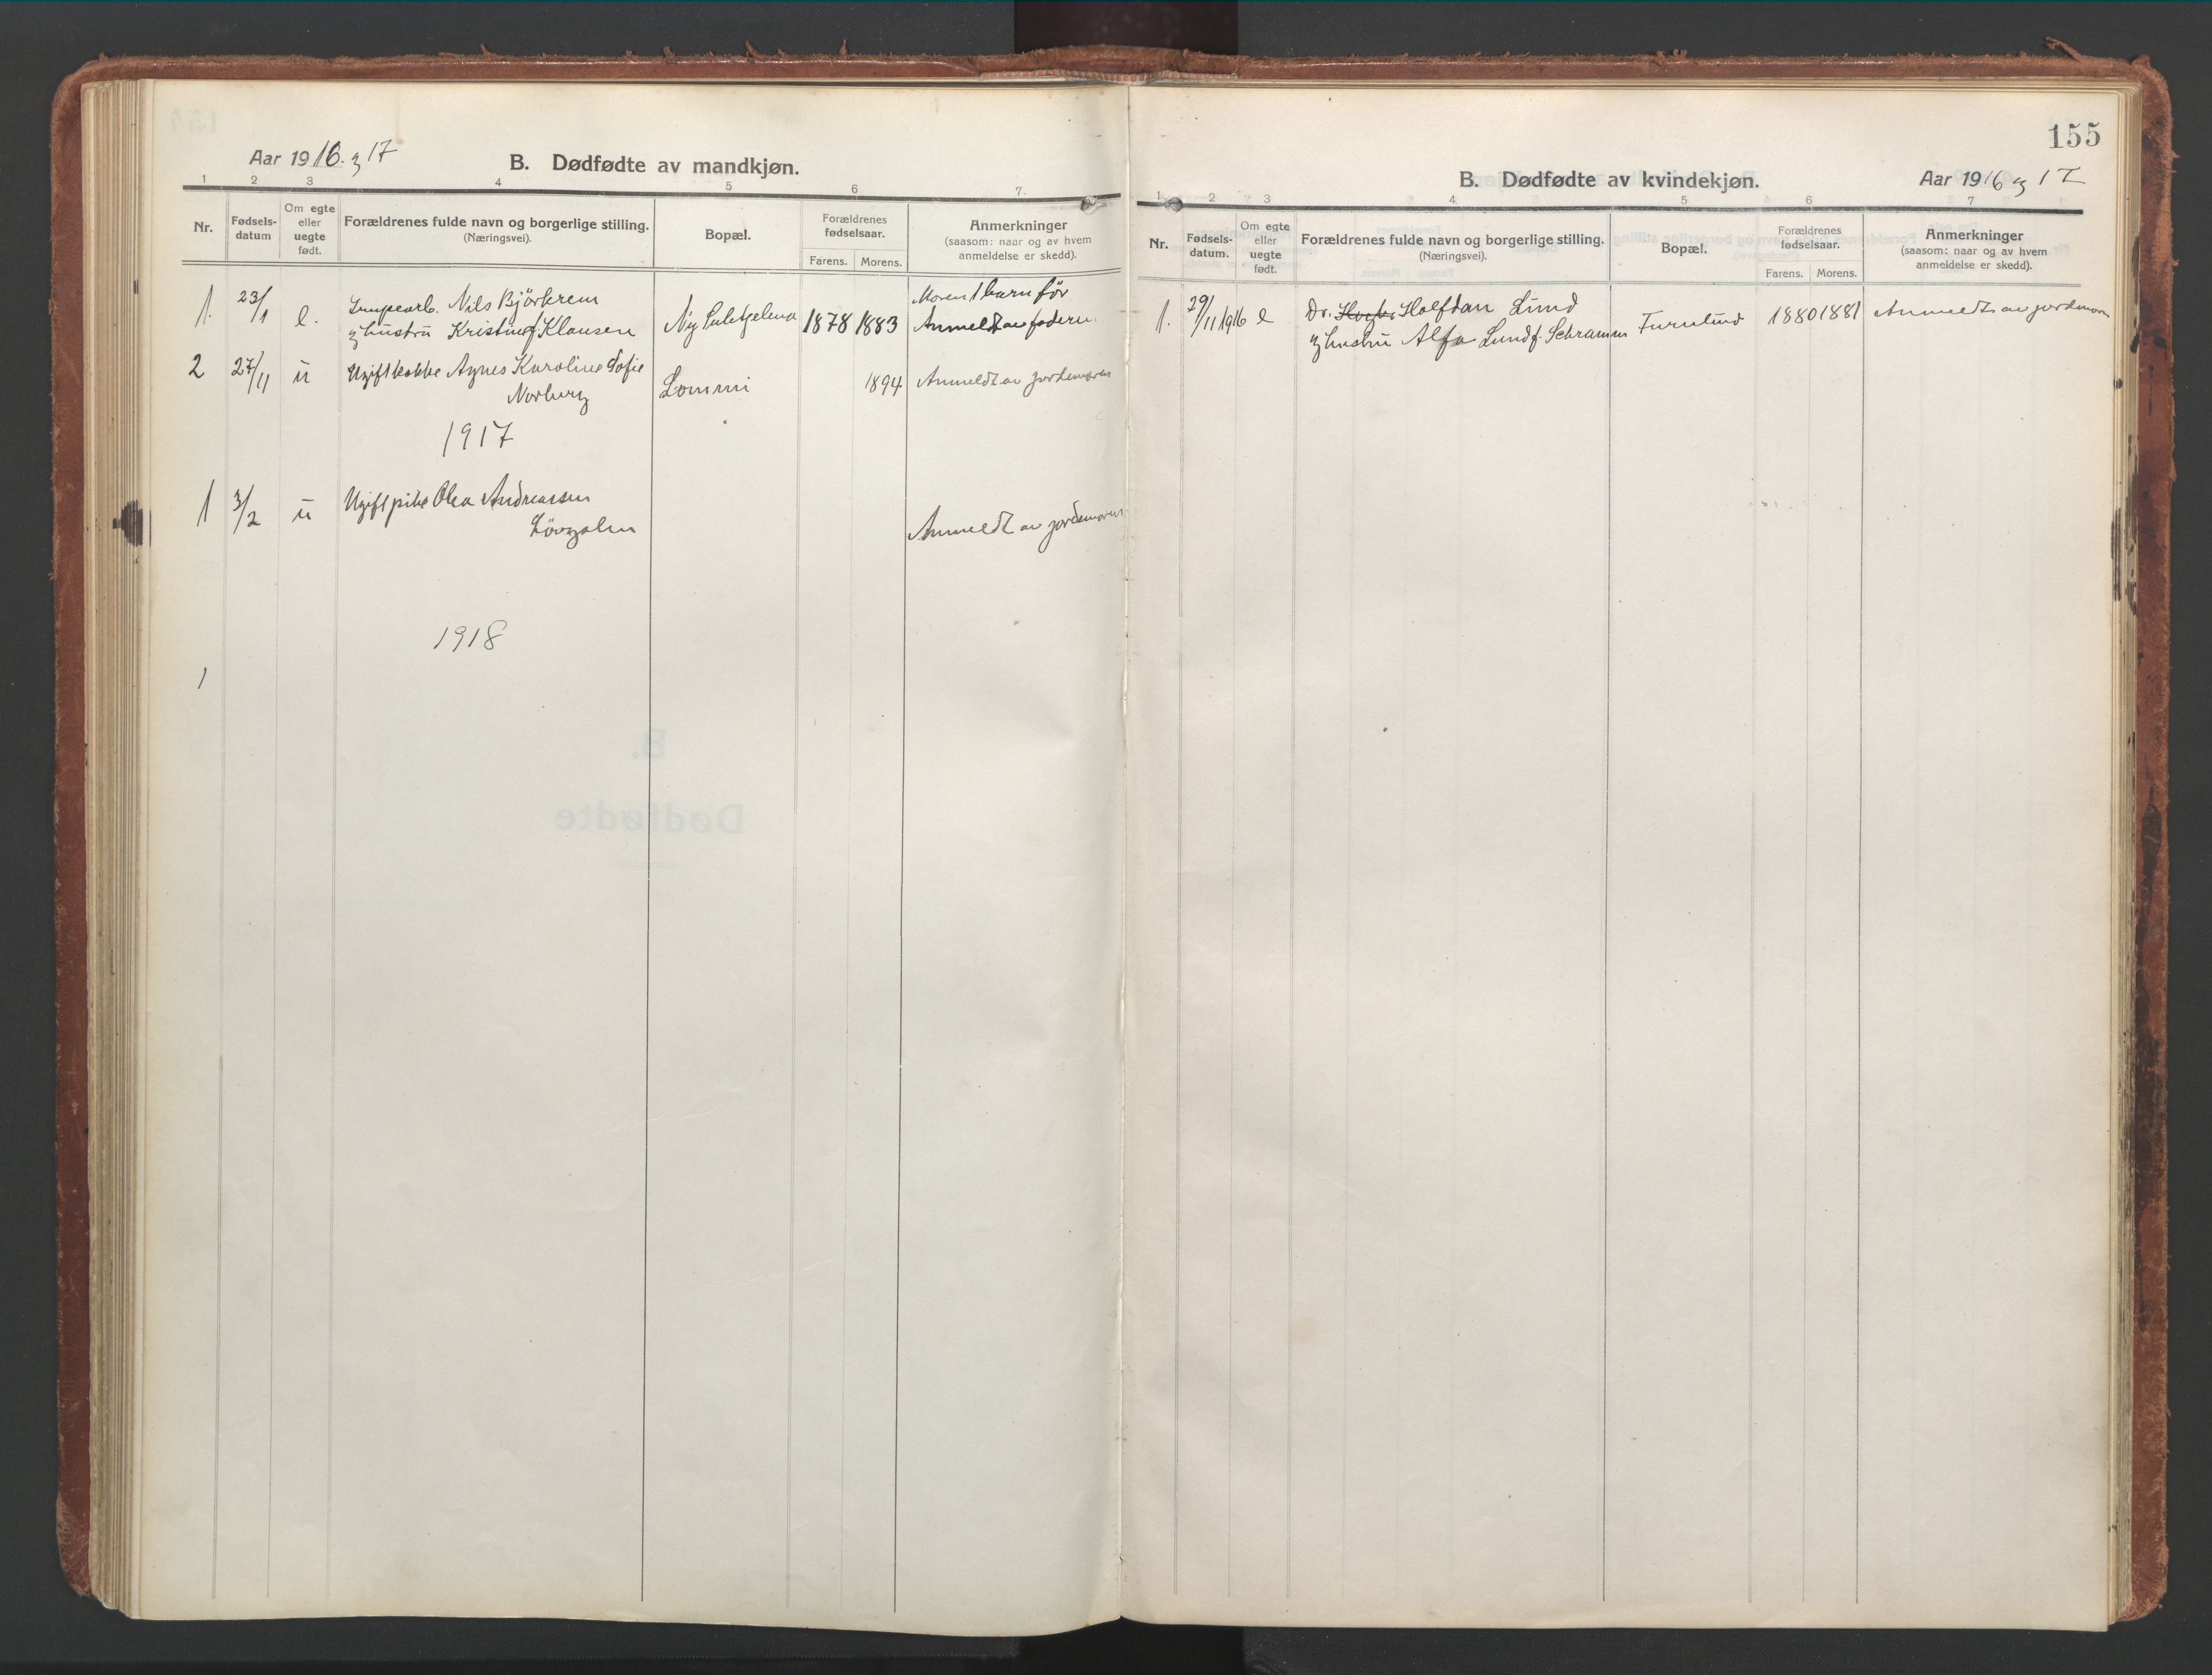 Aar 1916. og 17
B. Dødfødte av mandkjøn.
1 2 3 4 5 6 7.
Nr.
Fødsels-
datum
Om egte
eller
uegte
født.
Forældrenes fulde navn og borgerlige stilling.
(Næringsvei).
Bopæl.
Forældrenes
fødselsaar.
Farens. Morens.
Anmerkninger
(saasom: naar og av hvem
anmeldelse er skedd).
Moren 1 barn før
1. 23/1 e. Nils Björkrem 1878 1883 Anmeldt av faderen.
og hustru Kristine f. Klausen
2 27/11 u Ugift kokke Agnes Karoline Sofie
Norberg Lommi 1894 Anmeldt av jordemoren
1917
1 3/2 u Ugift pike Olea Andreassen
Anmeldt av jordemoren
1918
1
155
B. Dødfødte av kvindekjøn.
Aar 1916 og 17
1 2 3 4. 5 6 7
Nr.
Fødsels-
datum.
Om egte
eller
uegte
født.
Forældrenes fulde navn og borgerlige stilling.
(Næringsvei).
Bopæl.
Forældrenes
fødselsaar.
Farens. Morens.
Anmerkninger
(saasom: naar og av hvem
anmeldelse er skedd).
1. 29/11 1916 e Dr. Halfdan Lund Furulund 1880 1881 Anmeldt av jordmoren
og hustru Alfa Lund f. Schramm